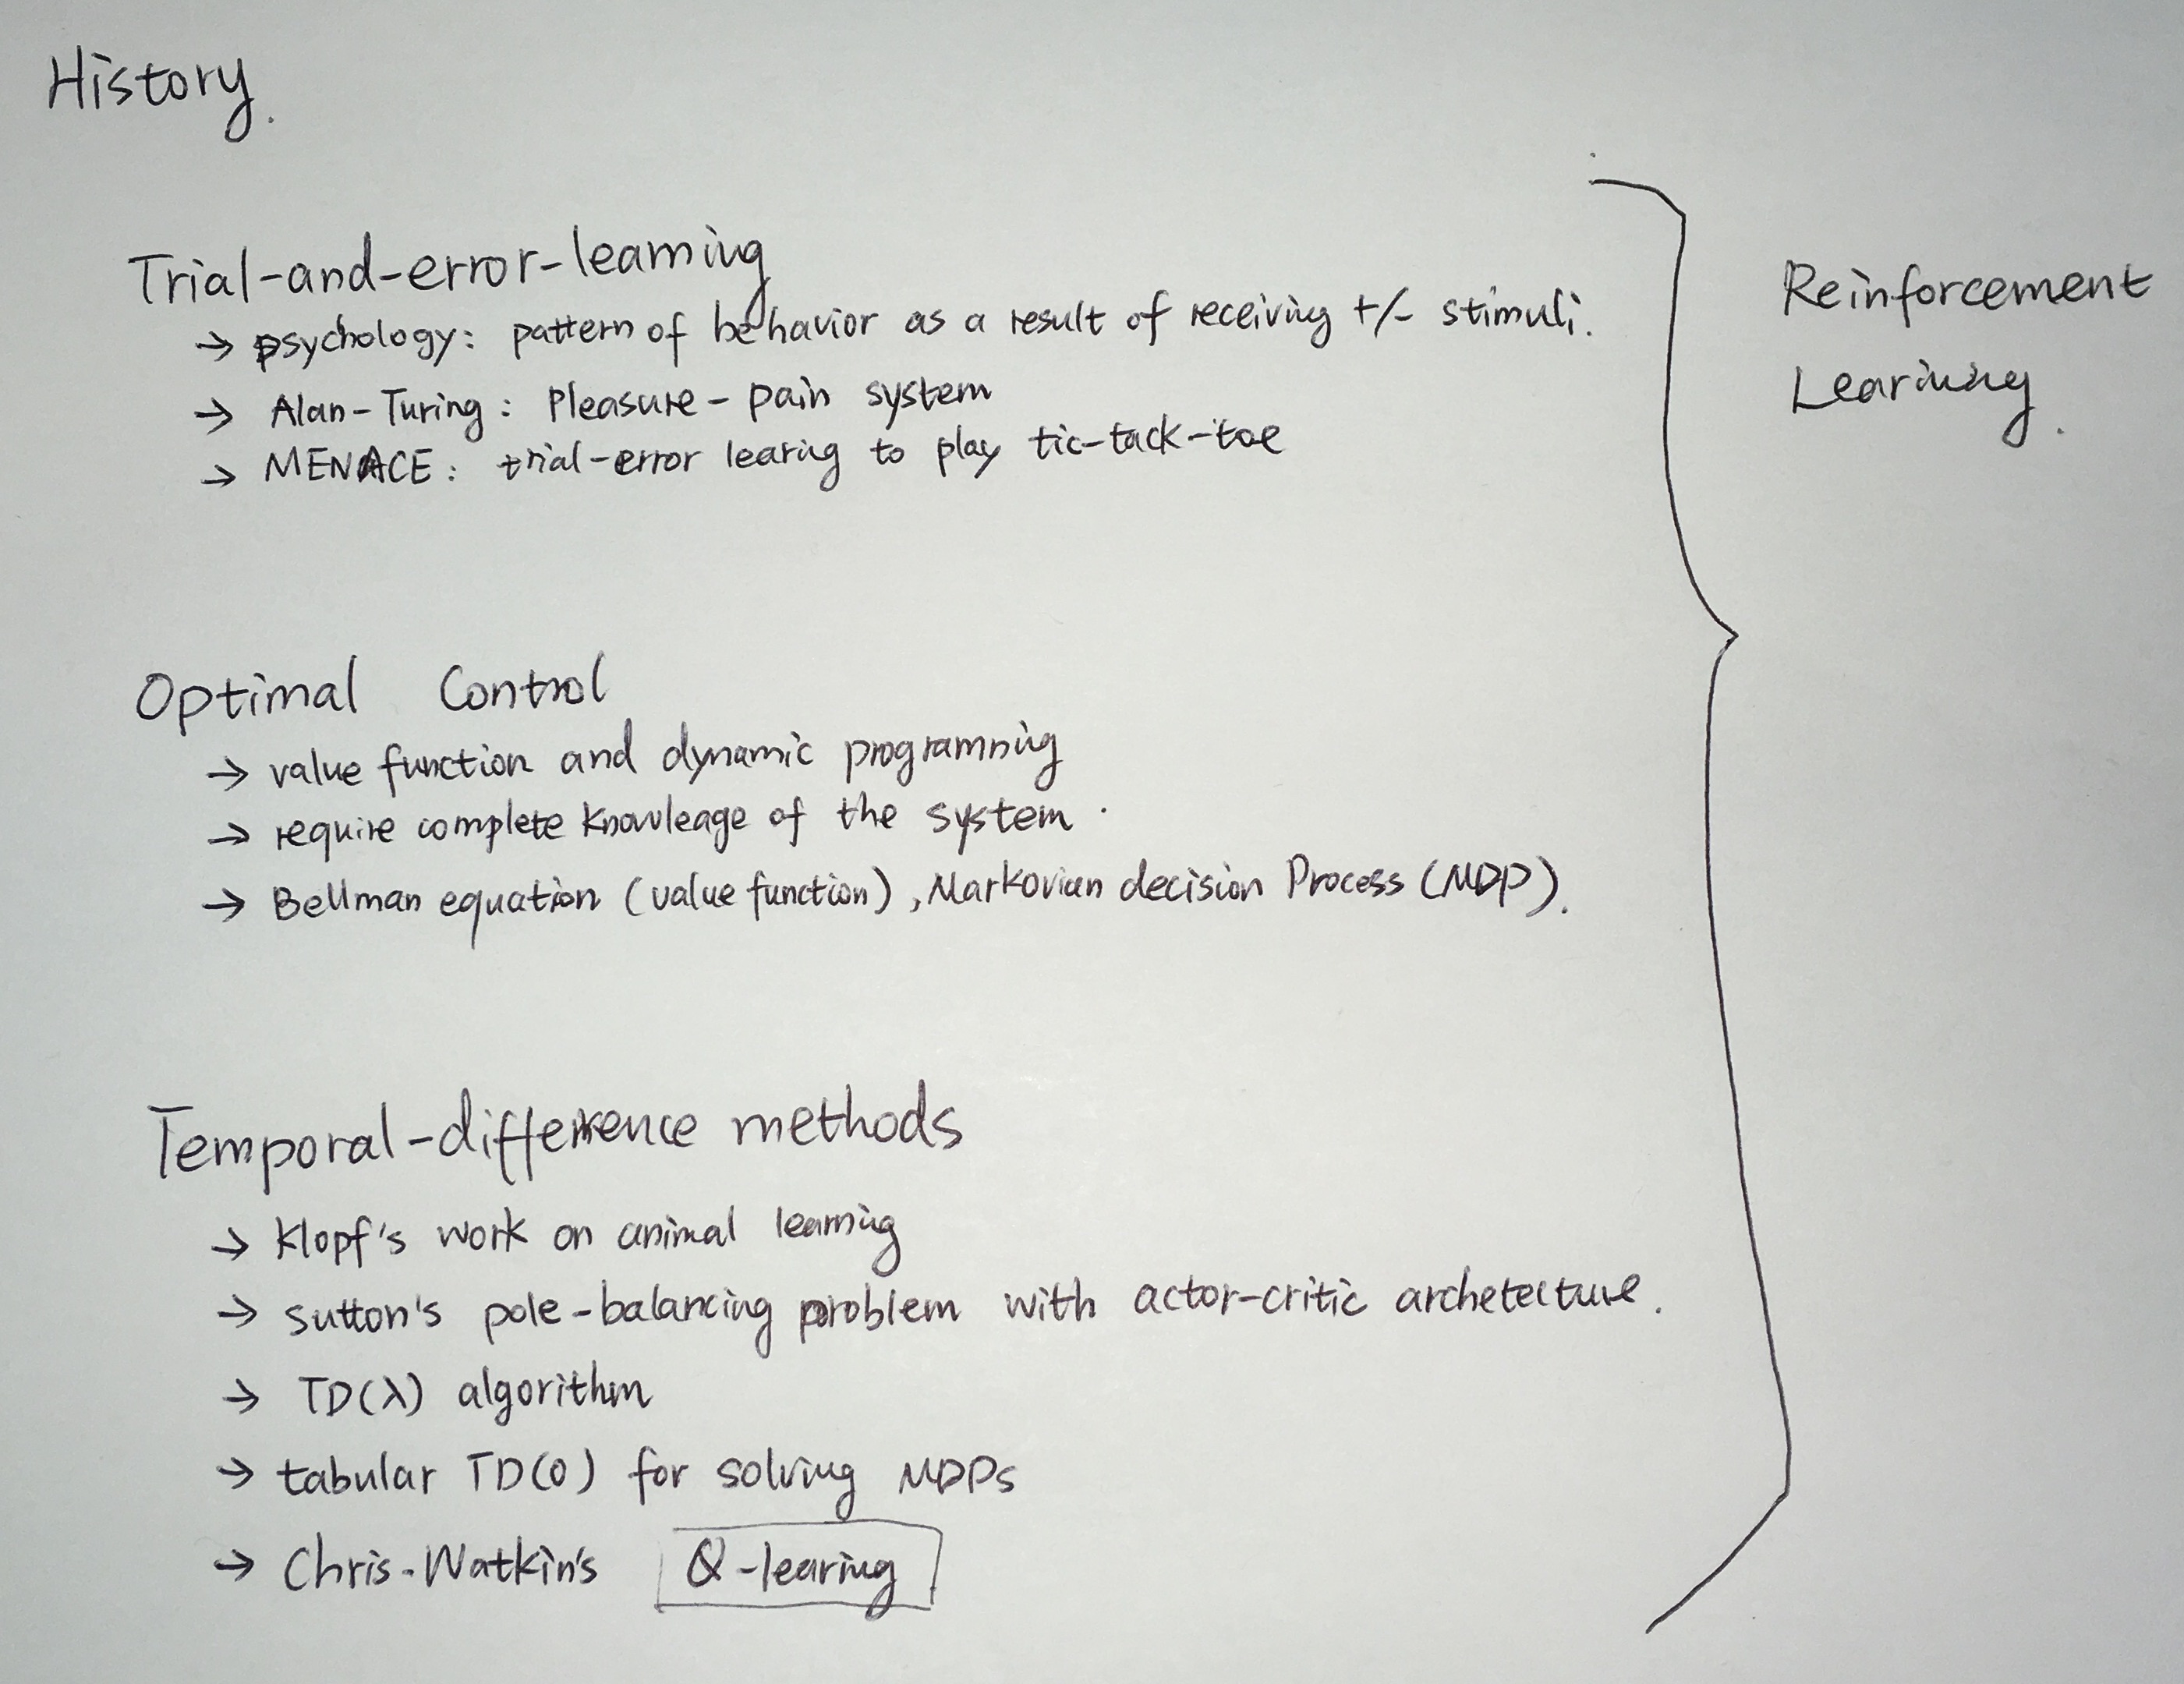 History.
Trial-and-error-learning
→ psychology: pattern of behavior as a result of receiving +/- stimuli.
→ Alan-Turing: Pleasure-pain system
→ MENACE: trial-error learing to play tic-tack-toe
Reinforcement
Learning.
Optimal Control
→ value function and dynamic programming
→ require complete knowleage of the system.
→ Bellman equation (value function), Markovian decision Process (MDP).
Temporal-difference methods
→ Klopf's work on animal learning
→ sutton's pole-balancing problem with actor-critic archetecture.
→ TD(λ) algorithm
→ tabular TD(0) for solving MDPs
→ Chris-Watkin's Q-learing